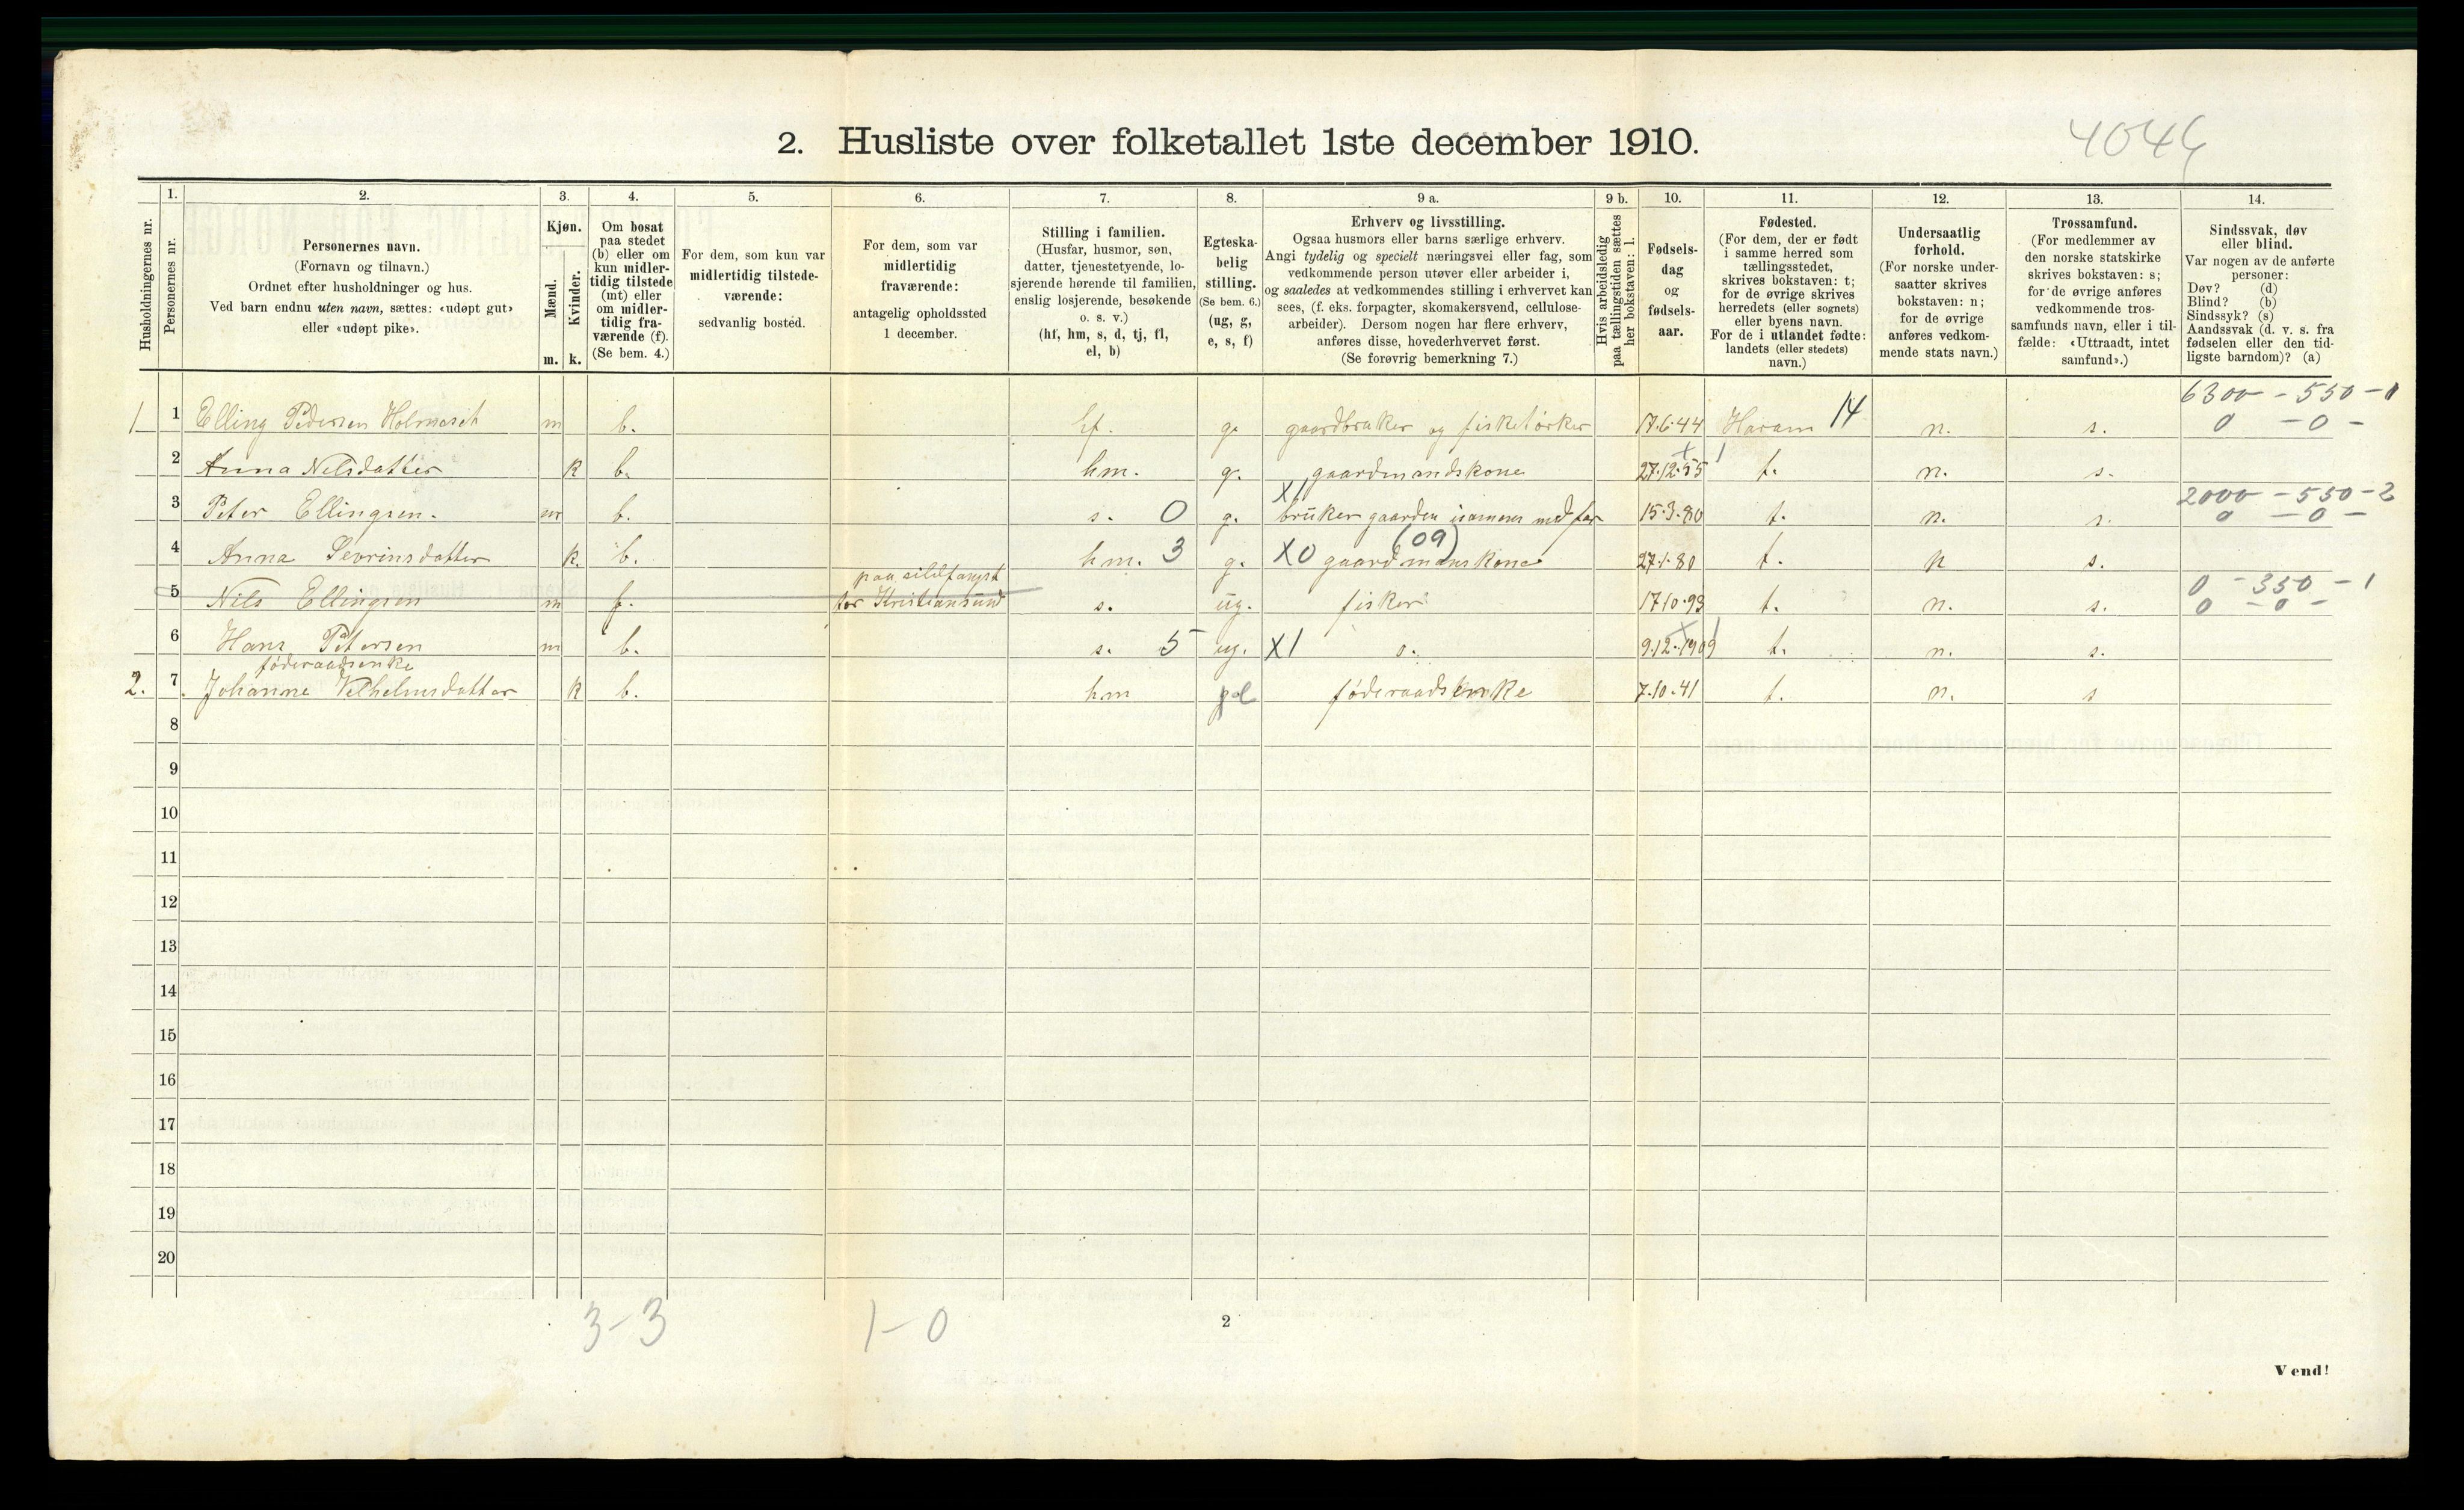 2. Husliste over folketallet 1ste december 1910.
4044
Husholdningernes nr.
1.
Personernes nr.
2.
Personernes navn.
(Fornavn og tilnavn.)
Ordnet efter husholdninger og hus.
Ved barn endnu uten navn, sættes: «udøpt gut»
eller «udøpt pike».
3.
Kjøn.
Mænd.
Kvinder.
m. k.
4.
Om bosat
paa stedet
(b) eller om
kun midler-
tidig tilstede
(mt) eller
om midler-
tidig fra-
værende (f).
(Se bem. 4.)
5.
For dem, som kun var
midlertidig tilstede-
værende:
sedvanlig bosted.
6.
For dem, som var
midlertidig
fraværende:
antagelig opholdssted
1 december.
7.
Stilling i familien.
(Husfar, husmor, søn,
datter, tjenestetyende, lo-
sjerende hørende til familien,
enslig losjerende, besøkende
o. s. v.)
(hf, hm, s, d, tj, fl,
el, b)
8.
Egteska-
belig
stilling.
(Se bem. 6.)
(ug, g,
e, s, f)
9 a.
Erhverv og livsstilling.
Ogsaa husmors eller barns særlige erhverv.
Angi tydelig og specielt næringsvei eller fag, som
vedkommende person utøver eller arbeider i,
og saaledes at vedkommendes stilling i erhvervet kan
sees, (f. eks. forpagter, skomakersvend, cellulose-
arbeider). Dersom nogen har flere erhverv,
anføres disse, hovederhvervet først.
(Se forøvrig bemerkning 7.)
9 b.
Hvis arbeidsledig
paa tællingstiden sættes
her bokstaven: l.
10.
Fødsels-
dag
og
fødsels-
aar.
11.
Fødested.
(For dem, der er født
i samme herred som
tællingsstedet,
skrives bokstaven: t;
for de øvrige skrives
herredets (eller sognets)
eller byens navn.
For de i utlandet fødte:
landets (eller stedets)
navn.)
12.
Undersaatlig
forhold.
(For norske under-
saatter skrives
bokstaven: n;
for de øvrige
anføres vedkom-
mende stats navn.)
13.
Trossamfund.
(For medlemmer av
den norske statskirke
skrives bokstaven: s;
for de øvrige anføres
vedkommende tros-
samfunds navn, eller i til-
fælde: «Uttraadt, intet
samfund».)
14.
Sindssvak, døv
eller blind.
Var nogen av de anførte
personer:
Døv? (d)
Blind? (b)
Sindssyk? (s)
Aandssvak (d. v. s. fra
fødselen eller den tid-
ligste barndom)? (a)
6300 - 550 - 1
1 1 Elling Pedersen Holmeset m b. hf. g. gaardbruker og fisketørker 17·6·44 Haram 14 n. s. 0 - 0 -
2 Anna Nilsdatter k b. hm. g. gaardmandskone 27·12·55 t. n. s.
X1 2000 - 550 - 2
3 Peter Ellingsen. m b. s. 0 g. bruker gaarden isamen med far 15·3·80 t. n. s. 0 - 0 -
(09)
4 Anna Sevrinsdatter k. b. hm. 3 g. X0 gaardmanskone 27·1·80 t. n s.
paa sildfangst 0 - 350 - 1
5 Nils Ellingsen m f. for Kristiansund s. ug. fisker 17·10·93 t. n. s. 0 - 0 -
6 Hans Petersen m b. s. 5 ug. X1 s. 9·12·1909 t. n. s.
føderaadsenke
2. 7 Johanne Vilhelmsdatter k b. hm føderaadsenke 7·10·41 t. n. s
8
9
10
11
12
13
14
15
16
17
18
19
20
3-3 1-0
2
Vend!